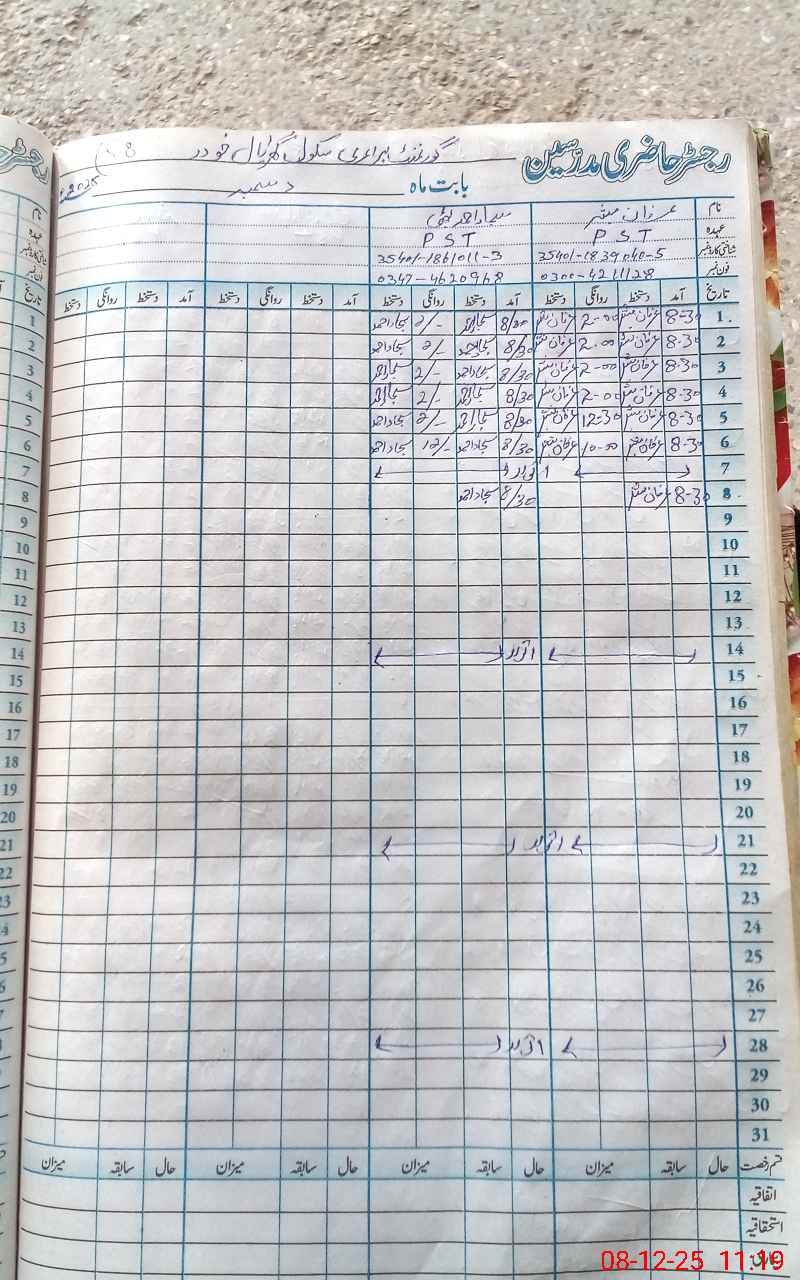 رجسٹر حاضری مدرسین گورنمنٹ پرائمری سکول
بابت ماہ دسمبر 2025
نام عرفان مبشر سجاد احمد
عہدہ PST PST
شناختی کارڈ نمبر 35401-1839040-5 35401-1861011-3
فون نمبر 0300-4211128 0347-4620968
تاریخ آمد دستخط روانگی دستخط آمد دستخط روانگی دستخط آمد دستخط روانگی دستخط آمد دستخط روانگی دستخط
1 8-30 عرفان مبشر 2-00 عرفان مبشر 8/30 سجاد احمد 2/- سجاد احمد
2 8-30 عرفان مبشر 2-00 عرفان مبشر 8/30 سجاد احمد 2/- سجاد احمد
3 8-30 عرفان مبشر 2-00 عرفان مبشر 8/30 سجاد احمد 2/- سجاد احمد
4 8-30 عرفان مبشر 2-00 عرفان مبشر 8/30 سجاد احمد 2/- سجاد احمد
5 8-30 عرفان مبشر 12-30 عرفان مبشر 8/30 سجاد احمد سجاد احمد
6 8-30 عرفان مبشر 10-00 عرفان مبشر 8/30 سجاد احمد سجاد احمد
7 اتوار
8 8-30 عرفان مبشر 8/30 سجاد احمد
9
10
11
12
13
14 اتوار
15
16
17
18
19
20
21 اتوار
22
23
24
25
26
27
28 اتوار
29
30
31
قسم رخصت حال سابقہ میزان حال سابقہ میزان حال سابقہ میزان حال سابقہ میزان
اتفاقیہ
استحقاقیہ
08-12-25 11:19